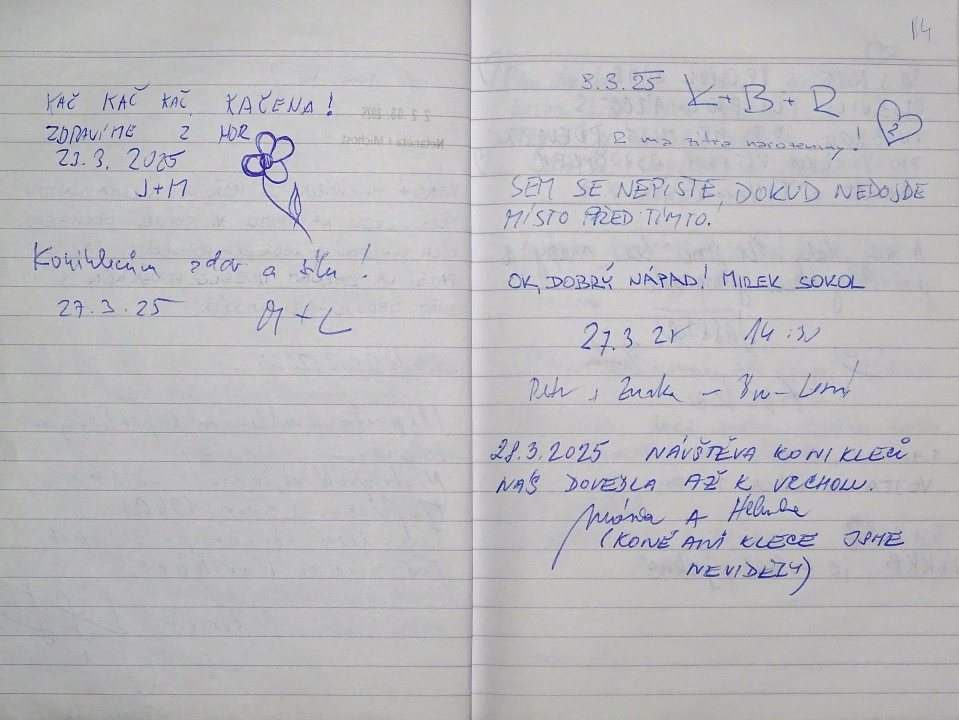 KAČ KAČ KAČ KAČENA!
ZDRAVÍME Z HOR
23.3. 2025
J+M
Koniklecům zdar a sílu!
27.3.25 M+L
14
3.3.25 K+B+R
R má zítra narozeniny! 2
SEM SE NEPIŠTE, DOKUD NEDOJDE
MÍSTO PŘED TÍMTO!
OK, DOBRÝ NÁPAD! MIREK SOKOL
27.3. 25 14:30
Petr
28.3.2025 NÁVŠTĚVA KONIKLECŮ
NÁS DOVEDLA AŽ K VRCHOLU.
A
(KONĚ ANI KLECE JSME
NEVIDĚLY)